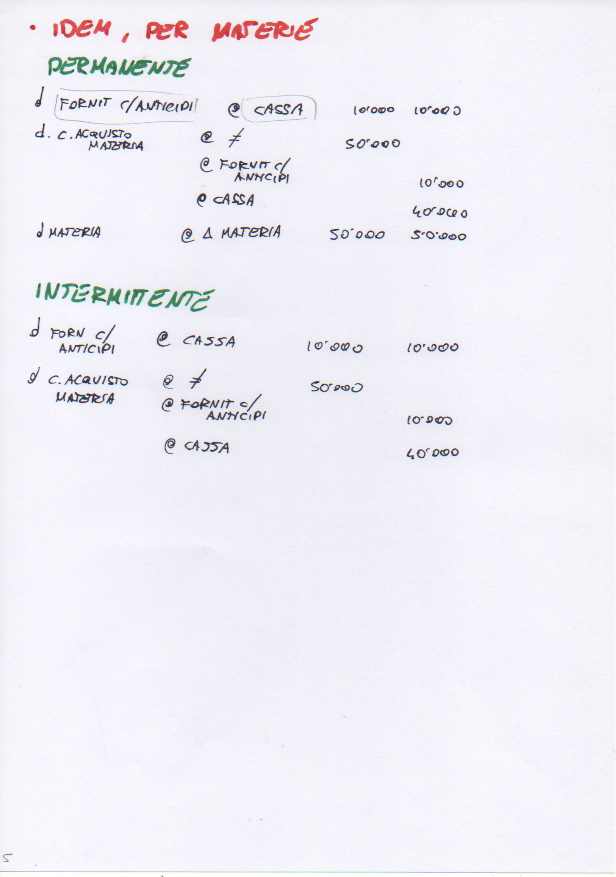 • IDEM, PER MATERIE
PERMANENTE
d FORNIT C/ANTICIPI @ CASSA 10'000 10'000
d. C. ACQUISTO MATERIA @ ≠ 50'000
@ FORNIT C/ ANTICIPI 10'000
@ CASSA 40'000
d MATERIA @ Δ MATERIA 50'000 50'000
INTERMITTENTE
d FORN C/ ANTICIPI @ CASSA 10'000 10'000
d C. ACQUISTO MATERIA @ ≠ 50'000
@ FORNIT C/ ANTICIPI 10'000
@ CASSA 40'000
5